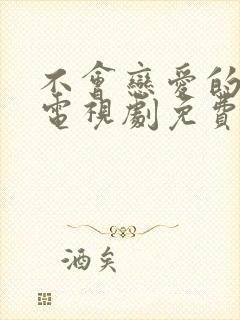 不會戀愛的
電視劇免費
酒矣